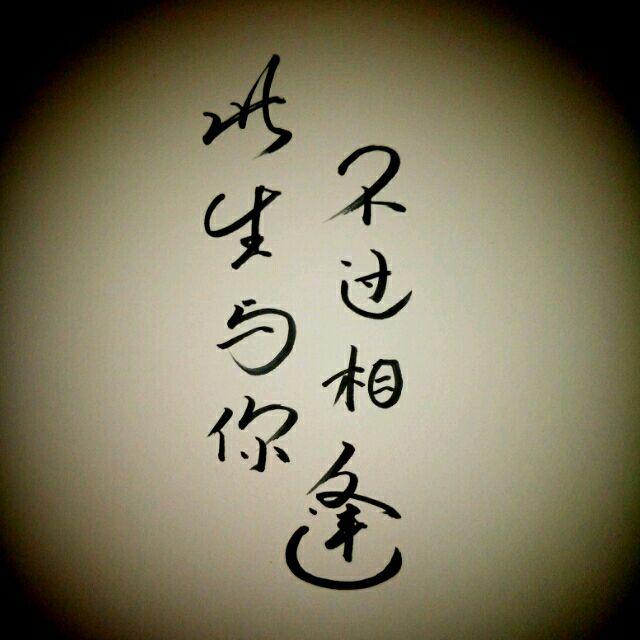 此生与你
不过相逢